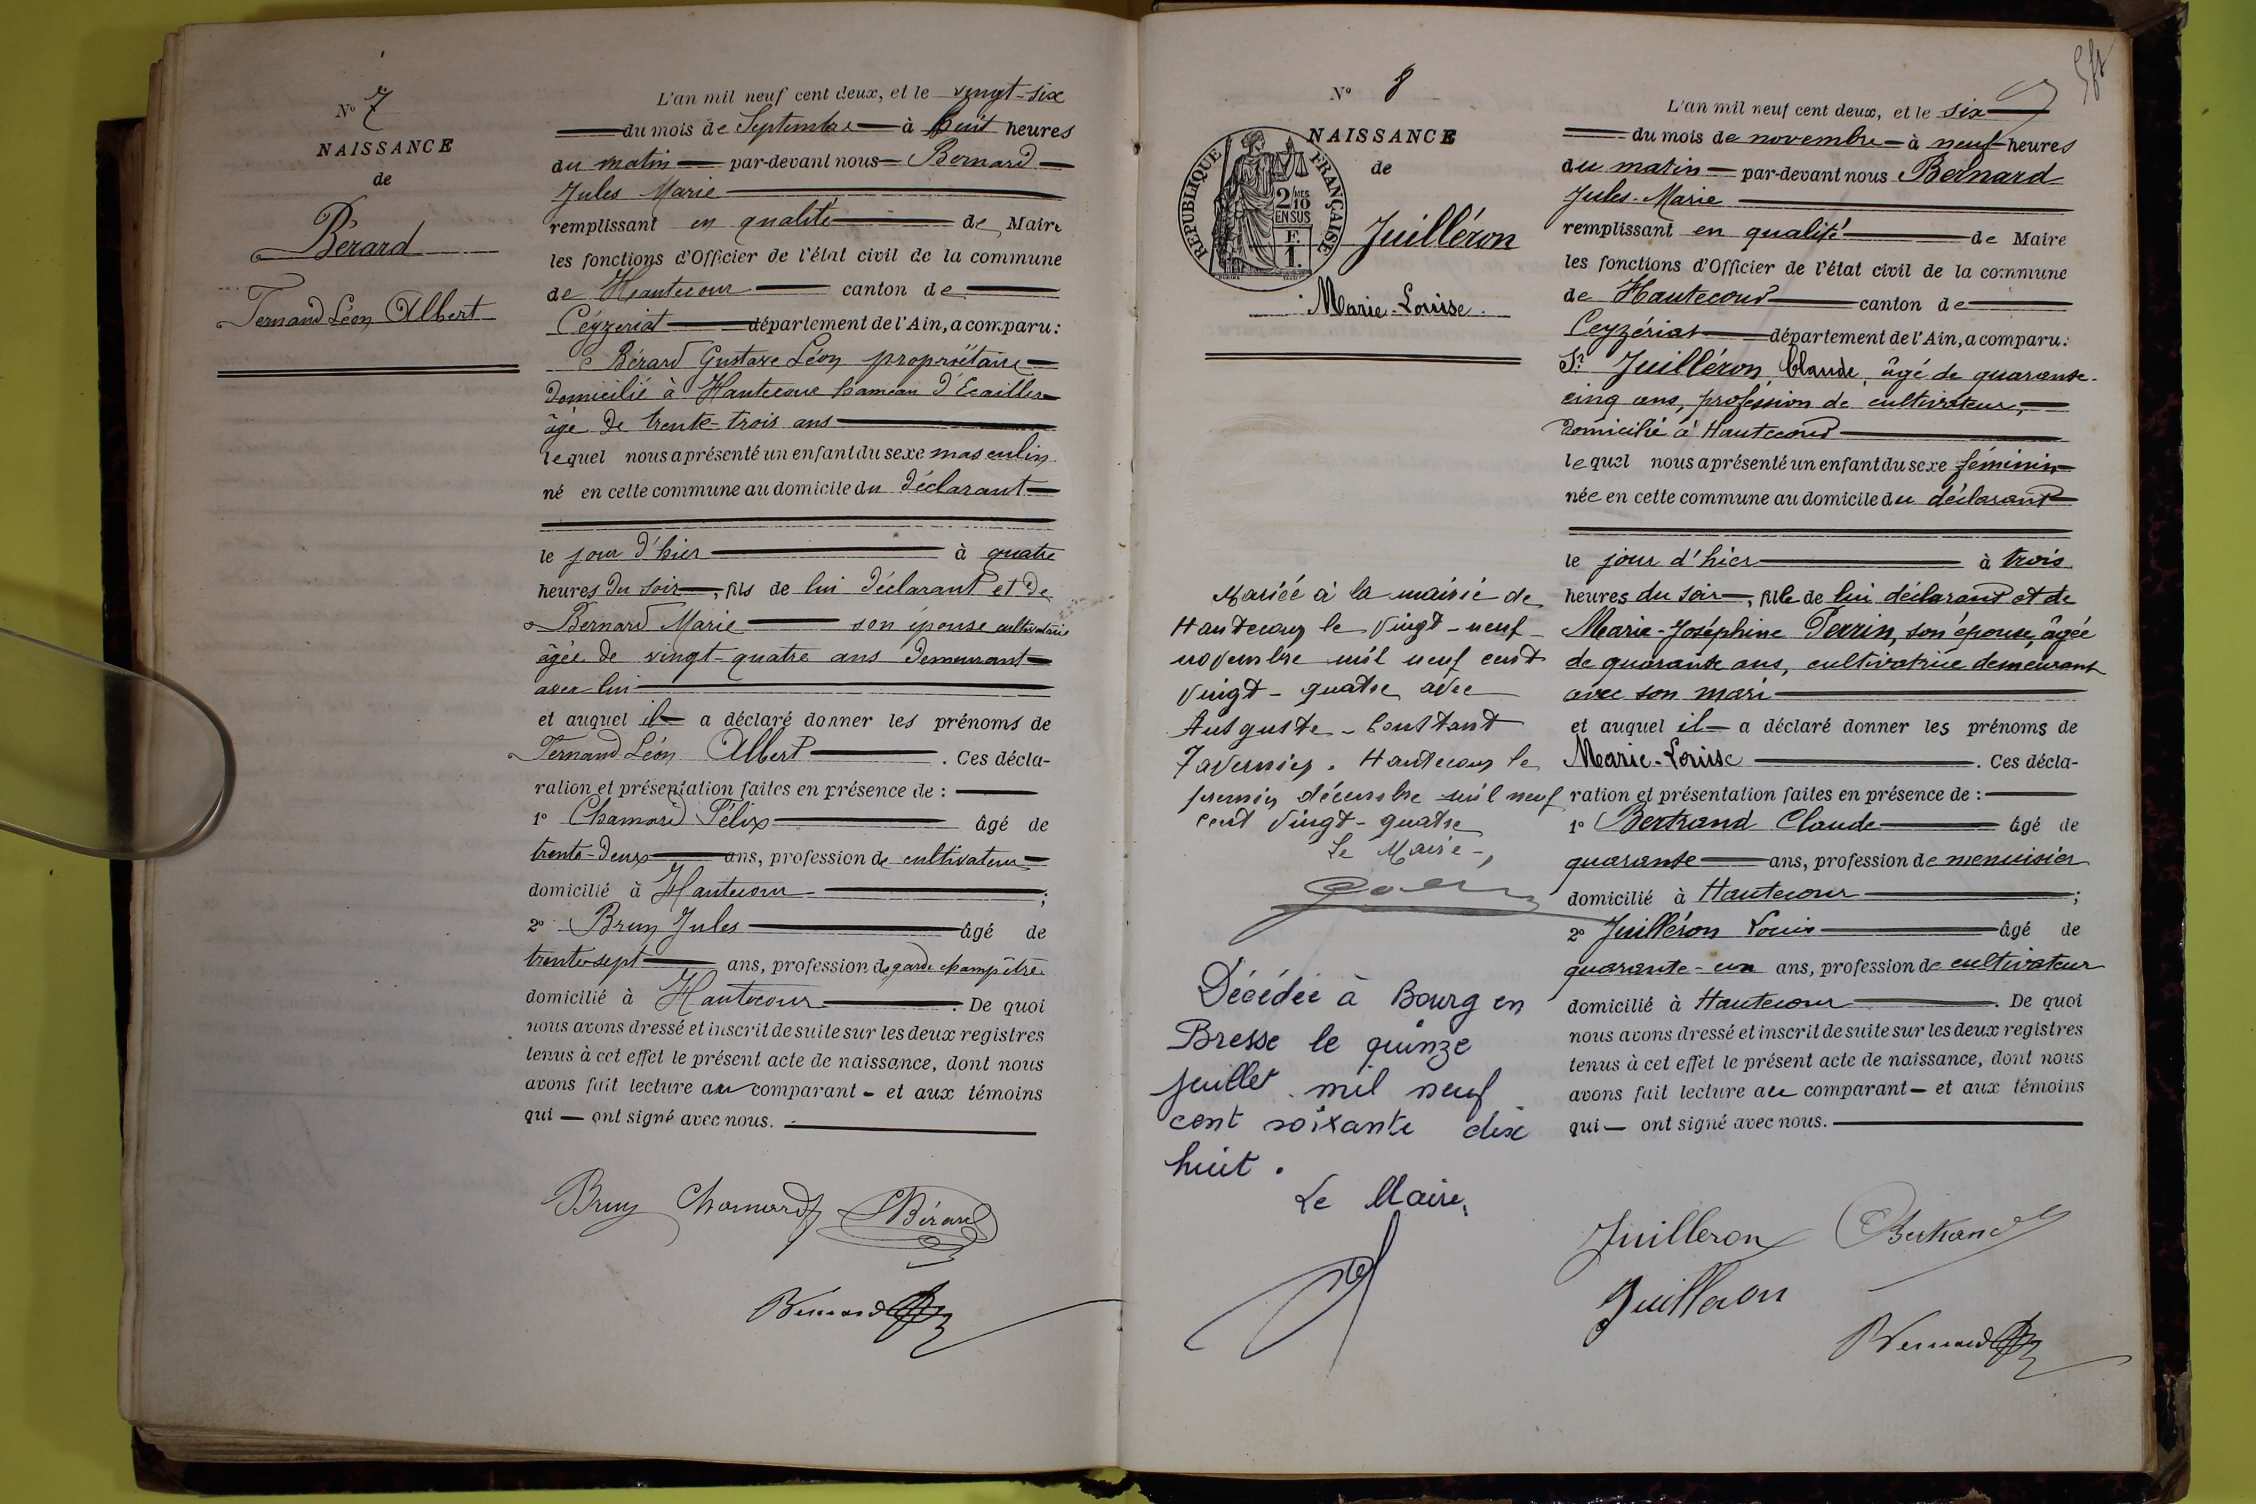 N° 7
NAISSANCE
de
Bérard
Fernand Léon Albert
L'an mil neuf cent deux, et le vingt-six
du mois de Septembre à huit heures
du matin par-devant nous Bernard
Jules Marie
remplissant en qualité de Maire
les fonctions d'Officier de l'état civil de la commune
de Hautecour canton de
Ceyzeriat département de l'Ain, a comparu:
Bérard Gustave Léon propriétaire
domicilié à Hautecour hameau d'Ecailles
âgé de trente-trois ans
lequel nous a présenté un enfant du sexe masculin
né en cette commune au domicile du déclarant
le jour d'hier à quatre
heures du soir, fils de lui déclarant et de
Bernard Marie son épouse cultivatrice
âgée de vingt-quatre ans demeurant
avec lui
et auquel il a déclaré donner les prénoms de
Fernand Léon Albert. Ces décla-
ration et présentation faites en présence de :
1° Chamard Félix âgé de
trente-deux ans, profession de cultivateur
domicilié à Hautecour ;
2° Brun Jules âgé de
trente-sept ans, profession de garde champêtre
domicilié à Hautecour. De quoi
nous avons dressé et inscrit de suite sur les deux registres
tenus à cet effet le présent acte de naissance, dont nous
avons fait lecture au comparant - et aux témoins
qui — ont signé avec nous.
Brun Chamard Bérard
Bernard
N° 8
NAISSANCE
de
REPUBLIQUE FRANÇAISE
2/10 MES
EN SUS
F.
1.
Juilléron
Marie-Louise
Mariée à la mairie de
Hautecour le vingt-neuf
novembre mil neuf cent
vingt-quatre avec
Auguste-Constant
Tavernier. Hautecour le
premier décembre mil neuf
cent vingt-quatre
Le Maire,
Décédée à Bourg en
Bresse le quinze
juillet mil neuf
cent soixante dix
huit.
Le Maire,
L'an mil neuf cent deux, et le six
du mois de novembre à neuf heures
du matin par-devant nous Bernard
Jules-Marie
remplissant en qualité de Maire
les fonctions d'Officier de l'état civil de la commune
de Hautecour canton de
Ceyzériat département de l'Ain, a comparu:
Sr Juilléron, Claude, âgé de quarante-
cinq ans, profession de cultivateur,
domicilié à Hautecour
lequel nous a présenté un enfant du sexe féminin
née en cette commune au domicile du déclarant
le jour d'hier à trois
heures du soir, fille de lui déclarant et de
Marie-Joséphine Perrin, son épouse, âgée
de quarante ans, cultivatrice demeurant
avec son mari
et auquel il a déclaré donner les prénoms de
Marie-Louise. Ces décla-
ration et présentation faites en présence de :
1° Bertrand Claude âgé de
quarante ans, profession de menuisier
domicilié à Hautecour ;
2° Juilléron Louis âgé de
quarante-un ans, profession de cultivateur
domicilié à Hautecour. De quoi
nous avons dressé et inscrit de suite sur les deux registres
tenus à cet effet le présent acte de naissance, dont nous
avons fait lecture au comparant — et aux témoins
qui — ont signé avec nous.
Juilleron Bertrand
Juilleron
Bernard